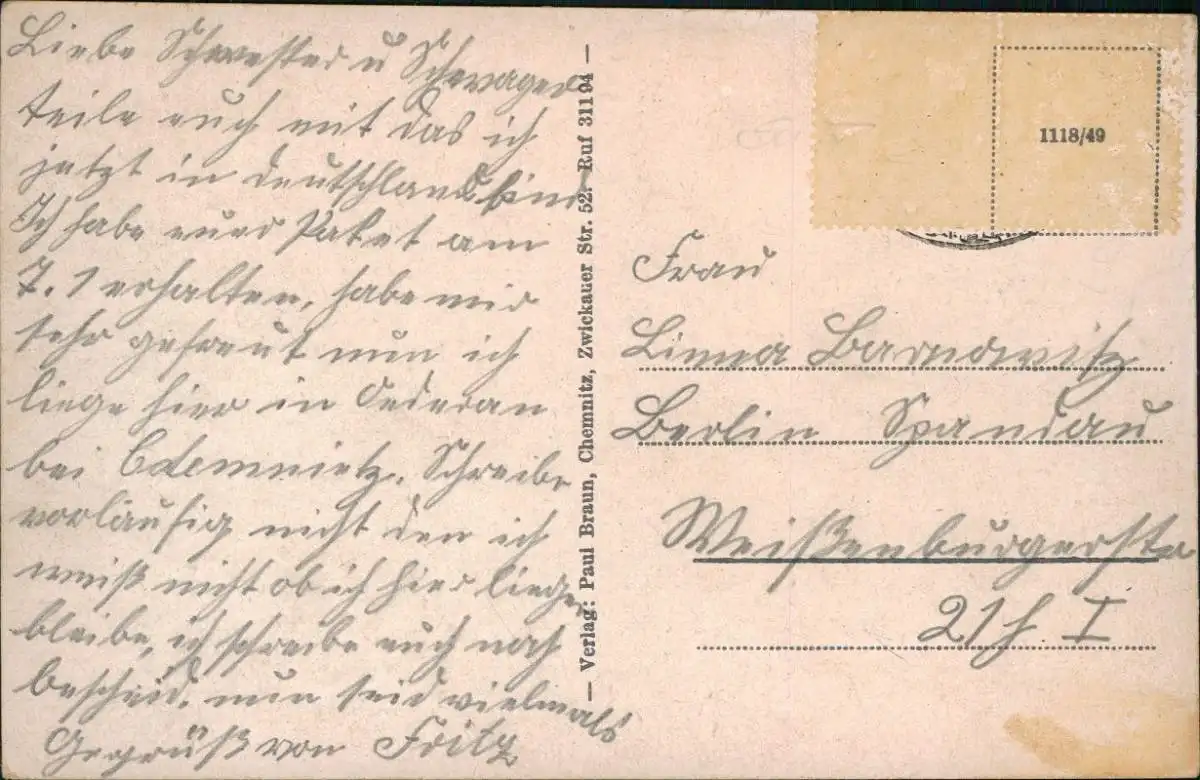 Liebe Schwester u Schwager
teile euch mit das ich
jetzt in deutschland bin
Ich habe euer Paket am
7.1 erhalten, habe mir
sehr gefreut nun ich
liege hier in Oederan
bei Cdemnietz. Schreibe
vorläufig nicht den ich
weiß nicht ob ich hier liegen
bleibe, ich schreibe euch noch
bescheid. nun seid vielmals
Gegrüßt von Fritz
— Verlag: Paul Braun, Chemnitz, Zwickauer Str. 52. Ruf 31194 —
1118/49
Frau
Linna Barnowitz
Berlin Spandau
Weißenburgerstr
21 I